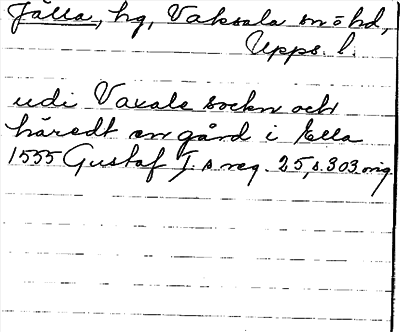 Jälla, hg, Vaksala sn o hd,
Upps. l.
udi Vaxale sockn och
häredt en gård i Ella
1535 Gustaf I:s reg. 25, s. 303 orig.